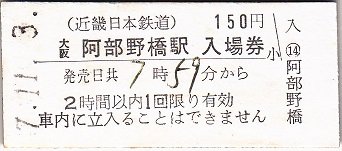 7.11.3.
（近畿日本鉄道） 150円
大阪 阿部野橋駅 入場券 小
発売日共 7時59分から
2時間以内1回限り有効
車内に立入ることはできません
入
⑭
阿部野橋